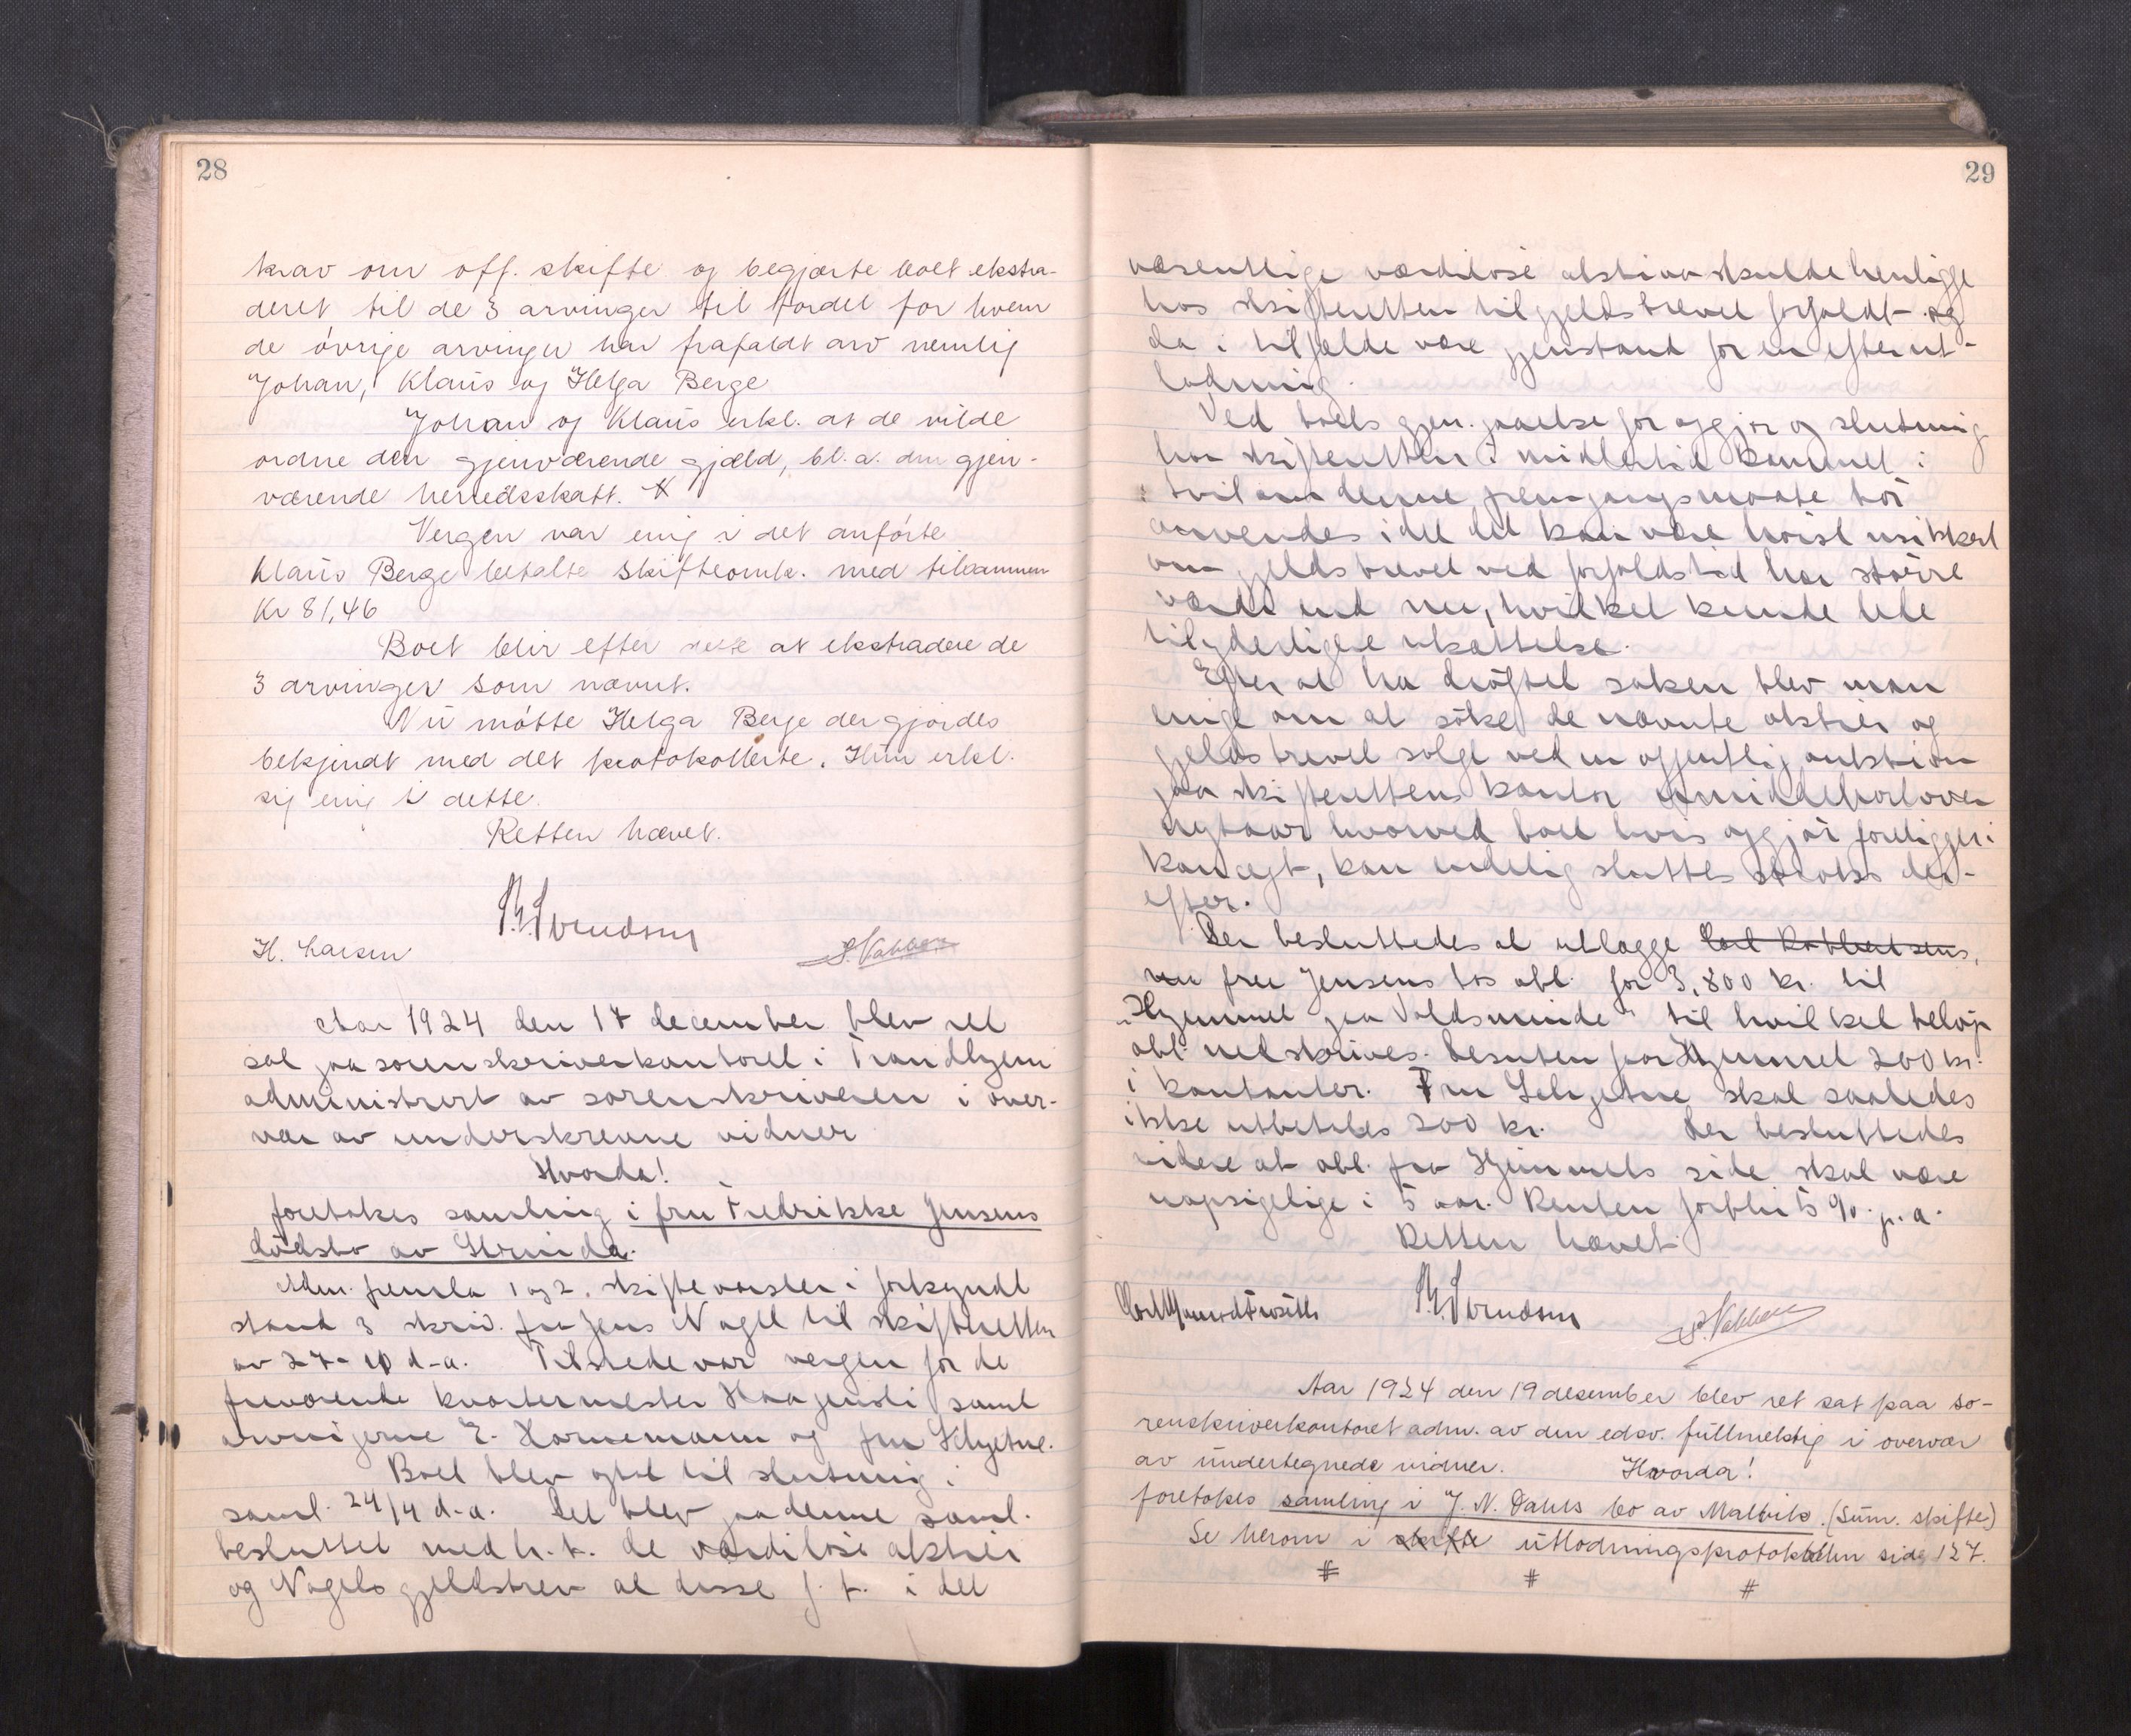 28
krav om off. skifte og begjærte boet ekstra-
deret til de 3 arvinger til fordel for hvem
de øvrige arvinger har frafaldt arv nemlig
Johan, Klaus og Helga Berge
Johan og Klaus erkl. at de vilde
ordne den gjenværende gjæld, bl.a. den gjen-
værende herredsskatt.
Vergen var enig i det anførte
Klaus Berge betalte skifteomk. med tilsammen
Kr 81,46
Boet blir efter dette at ekstradere de
3 arvinger som nævnt.
Nu møtte Helga Berge der gjordes
bekjendt med det protokollerte. Hun erkl.
sig enig i dette.
Retten hævet.
H. Larsen
Aar 1924 den 17 december blev ret
sat paa sorenskriverkontoret i Trondhjem
administrert av sorenskriveren i over-
vær av underskrevne vidner
Hvorda!
foretokes samling i fru Fredrikke Jensens
dødsbo av Strinda.
Adm. fremla 1 og 2. skiftevarsler i forkyndt
stand 3 skriv. fra Jens Nagel til skifteretten
av 27-10 d.a. Tilstede var vergen for de
fraværende kvartermester samt
arvingerne E. Hornemann og fru Schjetne.
Boet blev optat til slutning i
saml. 24/4 d.a. Det blev paa denne saml.
besluttet med h.t. de værdiløse aktier
og Nagels gjeldsbrev at disse f.t. i det
29
væsentlige værdiløse aktiva skulde henligge
hos skifteretten til gjeldsbrevet forfaldt og
da i tilfælde være gjenstand for en efterut-
lodning.
Ved boets gjen.gaaelse for opgjør og slutning
har skifteretten imidlertid kommet i
tvil om denne fremgangsmaate bør
anvendes idet det kan være høist usikkert
om gjeldsbrevet ved forfaldstid har større
værdi end nu, hvilket kunde lede
til yderligere utsættelse.
Efter at ha drøftet saken blev man
enige om at søke de nævnte aktier og
gjeldsbrevet solgt ved en offentlig auktion
paa skifterettens kontor umiddelbart over
nytaar hvorved boet hvis opgjør foreligger i
koncept, kan endelig sluttes straks der-
efter.
Der besluttedes at utlægge
nu fru Jensens hos obl. for 3,800 kr. til
"Hjemmet paa Valdsminde" til hvilket beløp
obl. nedskrives. Desuten faar Hjemmet 200 kr.
i kontanter. Fru Schjetne skal saaledes
ikke utbetales 200 kr. Der besluttedes
videre at obl. fra Hjemmets side skal være
uopsigelige i 5 aar. Renten forblir 5 % p.a.
Retten hævet.
Aar 1924 den 19 desember blev ret sat paa so-
renskriverkontoret adm. av den edsv. fullmektig i overvær
av undertegnede vidner. Hvorda!
foretokes samling i J. N. Dahls bo av Malvik. (Sum. skifte)
Se herom i skifte utlodningsprotokollen side 127.
# # #